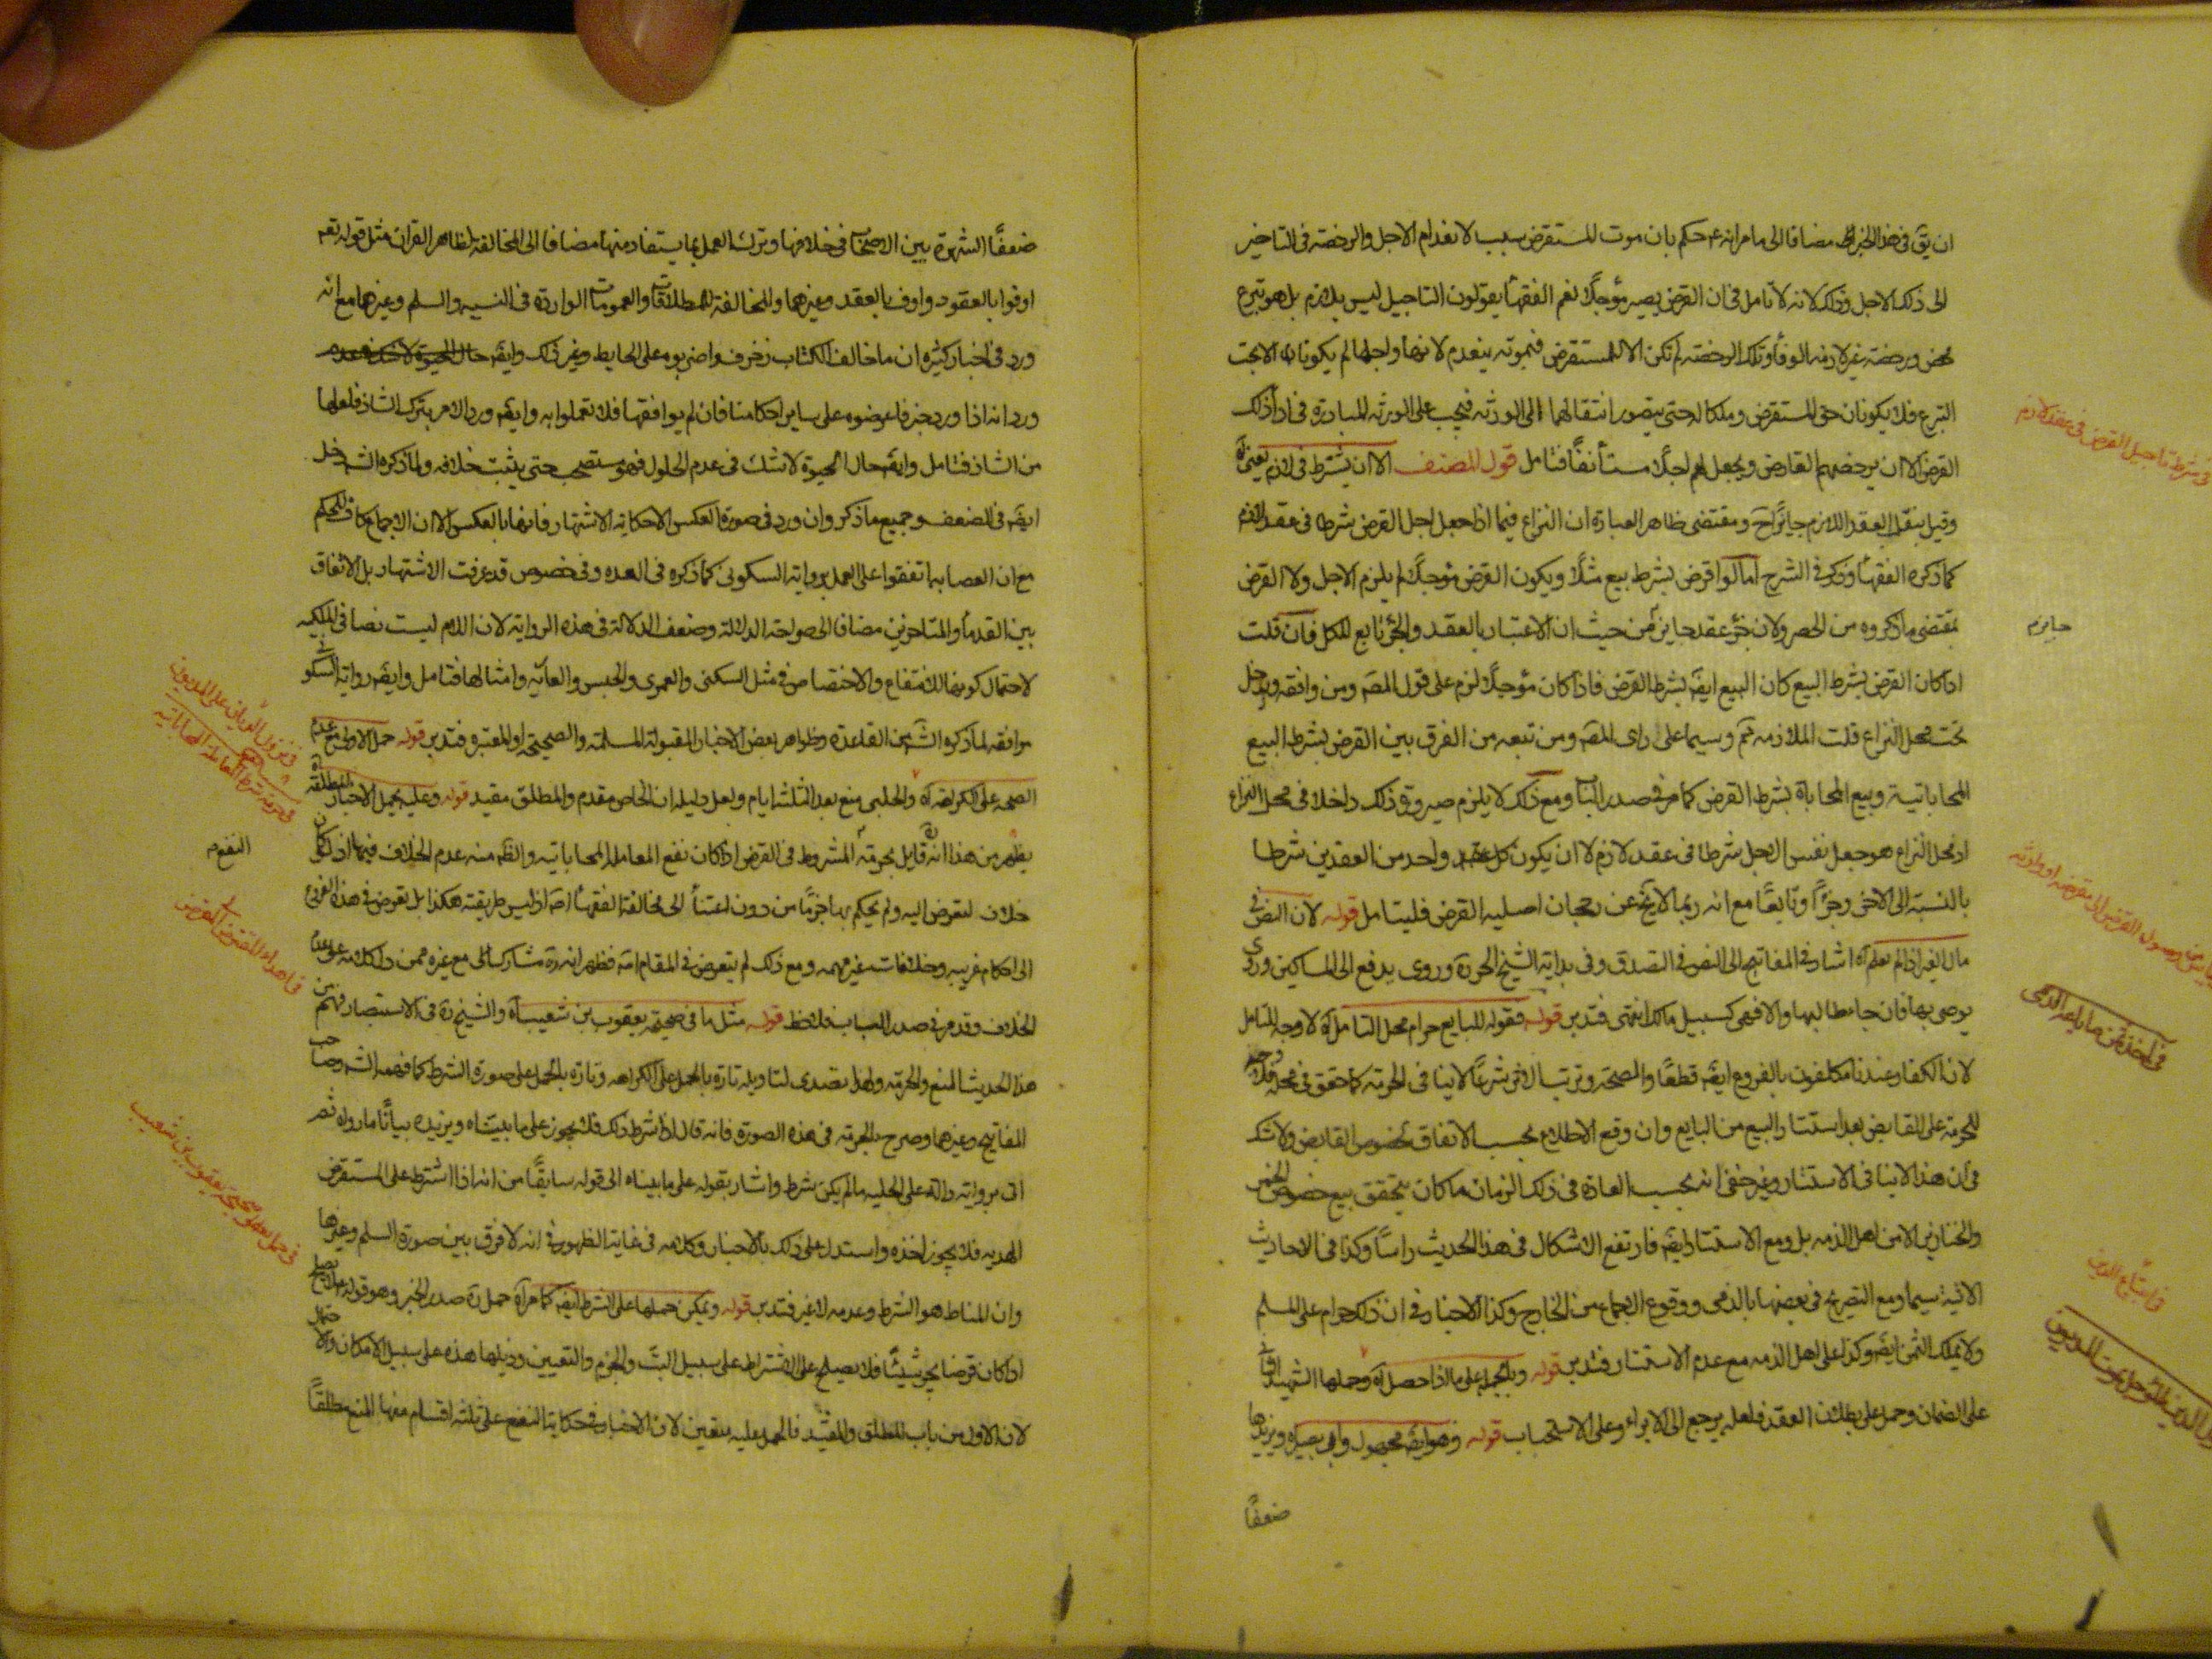 ان يق في هذا الخبر الخ مضافا الى ما مر انه ع حكم بان موت المستقرض سبب لانعدام الاجل والرخصة في التاخير
الى ذلك الاجل وذلك لانه لا تامل في ان القرض يصير مؤجلًا نعم الفقهاء يقولون التاجيل ليس بلازم بل هو تبرع
محض ورخصة غير لازمة الوفاء وتلك الرخصة لم تكن الا للمستقرض فبموته ينعدم لانهما واجلها لم يكونا الا بحت
التبرع فلا يكونان حق المستقرض وملكا له حتى يتصور انتقالهما الى الورثه فيجب على الورثه المبادرة في اداء ذلك
القرض الا ان يرخصهم القارض ويجعل لهم اجلًا مستأنفًا فتامل قول المصنف الا ان يشترط في لازم
وقيل ينقلب العقد اللازم جائزًا ومقتضى ظاهر العبارة ان النزاع فيما اذا جعل اجل القرض شرطا في عقد لازم
كما ذكره الفقهاء وذكر في الشرح اما لو اقرض بشرط بيع مثلًا ويكون القرض مؤجلًا لم يلزم الاجل ولا القرض
بمقتضى ما ذكروه من الحصر ولان جزء عقد جايز من حيث ان الاعتبار بالعقد والجزء تابع للكل فان قلت
اذا كان القرض بشرط البيع كان البيع ايضًا بشرط القرض فاذا كان مؤجلًا لزم على قول المصر ومن وافقه ويدخل
تحت محل النزاع قلت الملازمة ثم وسيما على راى المصر ومن تبعه من الفرق بين القرض بشرط البيع
المحاباتية وبيع المحاباة بشرط القرض كما مر في صدر الباب ومع ذلك لا يلزم صيرورة ذلك داخلا في محل النزاع
اذ محل النزاع هو جعل نفس الاجل شرطا في عقد لازم لا ان يكون كل واحد من العقدين شرطا
بالنسبة الى الاخر وجزءًا وتابعًا مع انه ربما لا يخ عن رجحان اصلية القرض فليتامل قوله لان النص في
مال الغير اذا لم يعلم اه اشار في المفاتيح الى النص في التصدق وفي بداية الشيخ الحر ره وروى يدفع الى المساكين وروى
يوصى بها فان جاء طالبها والا فهي كسبيل مالك انتهى فتدبر قوله فقوله للبايع حرام محل التامل اه لا وجه للتامل
لان الكفار عندنا مكلفون بالفروع ايضًا قطعًا والصحة وترتب الاثر شرعًا لا ينافي الحرمة كما حقق في محله فلا وجه
للحرمة على القابض بعد استتار البيع من البايع وان وقع الاطلاع بحسب الاتفاق بخصوص القابض ولا شك
في ان هذا لا ينافي الاستتار وغير خفي انه بحسب العادة في ذلك الزمان ما كان يتحقق بيع خصوص الخمر
والخنازير الا من اهل الذمه بل ومع الاستتار ايضًا فارتفع الاشكال في هذا الحديث راسًا وكذا في الاحاديث
الاتية سيما ومع التصريح في بعضها بالذمى ووقوع الاجماع من الخارج وكذا الاخبار في ان ذلك حرام على المسلم
ولا يملك الثمن ايضًا وكذا على اهل الذمه مع عدم الاستتار فتدبر قوله وبالحمل على ما اذا حصل اه وحملها الشهيد
على الضمان وحمل على بطلان العقد فلعله يرجع الى الابراء وعلى الاستحباب قوله وهو ايضًا مجهول
ضعفًا
جايز م
في اشتراط تاجيل القرض في عقد لازم
في اخذ ثمن ما باعه الذمى
ضعفًا الشهرة بين الاصحاب في خلافها وترك العمل بما يستفاد منها مضافا الى المخالفة لظاهر القران مثل قوله تعه
اوفوا بالعقود واوف بالعقد وغيرهما والمخالفة للمطلقات والعمومات الواردة في النسيه والسلم وغيرهما مع انه
ورد في اخبار كثيره ان ما خالف الكتاب زخرف واضربوه على الحايط وغير ذلك
ورد انه اذا ورد خبر فاعرضوه على ساير احكامنا فان لم يوافقها فلا تعملوا به وايضًا ورد الامر بترك الشاذ فلعلها
من الشاذ فتامل وايضًا حال الحيوة لا شك في عدم الحلول فهو مستصحب حتى يثبت خلافه
ايضًا في الضعف وجميع ما ذكر وان ورد في صورة العكس الا حكاية الاشتهار فانها بالعكس الا ان الاجماع كاف للحكم
مع ان العصابه اتفقوا على العمل برواية السكونى كما ذكره في العده وفي خصوص قد عرفت الاشتهار بل الاتفاق
بين القدماء والمتاخرين مضاف الى صراحة الدلالة وضعف الدلالة في هذه الرواية لان اللام ليست نصا في الملكيه
لاحتمال كونها للانتفاع والاختصاص في مثل السكنى والعمرى والحبس والعارية وامثالها فتامل وايضًا رواية السكونى
موافقة لما ذكره الش من القاعدة وظواهر بعض الاخبار المقبولة المسلمة والصحيحة او المعتبره فتدبر قوله
الصحه على الكراهة اه والحلبى منع بعد الثلثة ايام ولعل دليله ان الخاص مقدم والمطلق مقيد قوله وعليه يحمل الاخبار المطلقة
يظهر من هذا انه قايل بحرمة المشروط في القرض اذا كان نفع المعاملة المحاباتيه والظ منه عدم الخلاف فيها اذ لو كان
خلاف لتعرض اليه ولم يحكم بها جزمًا من دون اعتناء الى مخالفة الفقهاء اصلا اذ ليس طريقته هكذا بل تعرض في هذه الفروع
الى احكام غريبه وخلافات غير مهمه ومع ذلك لم يتعرض في المقام
الخلاف وقد مر في صدر الباب فلاحظ قوله مثل ما في صحيحة يعقوب بن شعيب اه والشيخ ره في الاستبصار فهم من
هذا الحديث المنع والحرمة ولهذا تصدى لتاويله تارة بالحمل على الكراهه وتارة بالحمل على صورة الشرط كما فهمه الش وصاحب
المفاتيح وغيرهما وصرح بالحرمة في هذه الصورة فانه قال اذا شرط ذلك فلا يجوز على ما بيناه ويزيده بيانًا ما رواه ثم
اتى برواية دالة على الحلية ما لم يكن شرط واشار بقوله على ما بيناه الى قوله سابقًا من انه اذا اشترط على المستقرض
الهديه فلا يجوز اخذه واستدل على ذلك بالاخبار وكلامه في غاية الظهور في انه لا فرق بين صورة السلم وغيرها
وان المناط هو الشرط وعدمه لا غير فتدبر قوله ويمكن حملها على الشرط ايضًا كما مر اه حمل ره صدر الخبر وهو قوله لا يصلح
اذا كان قرضا يجر شيئًا فلا يصلح على الاشتراط على سبيل البت والجزم والتعيين وذيلها هذه على سبيل الامكان والاحتمال
لان الاول من باب المطلق والمقيد فالحمل عليه متعين لان الاخبار في حكاية النفع على ثلثه اقسام منها المنع مطلقًا
النفع م
في اهداء المقترض